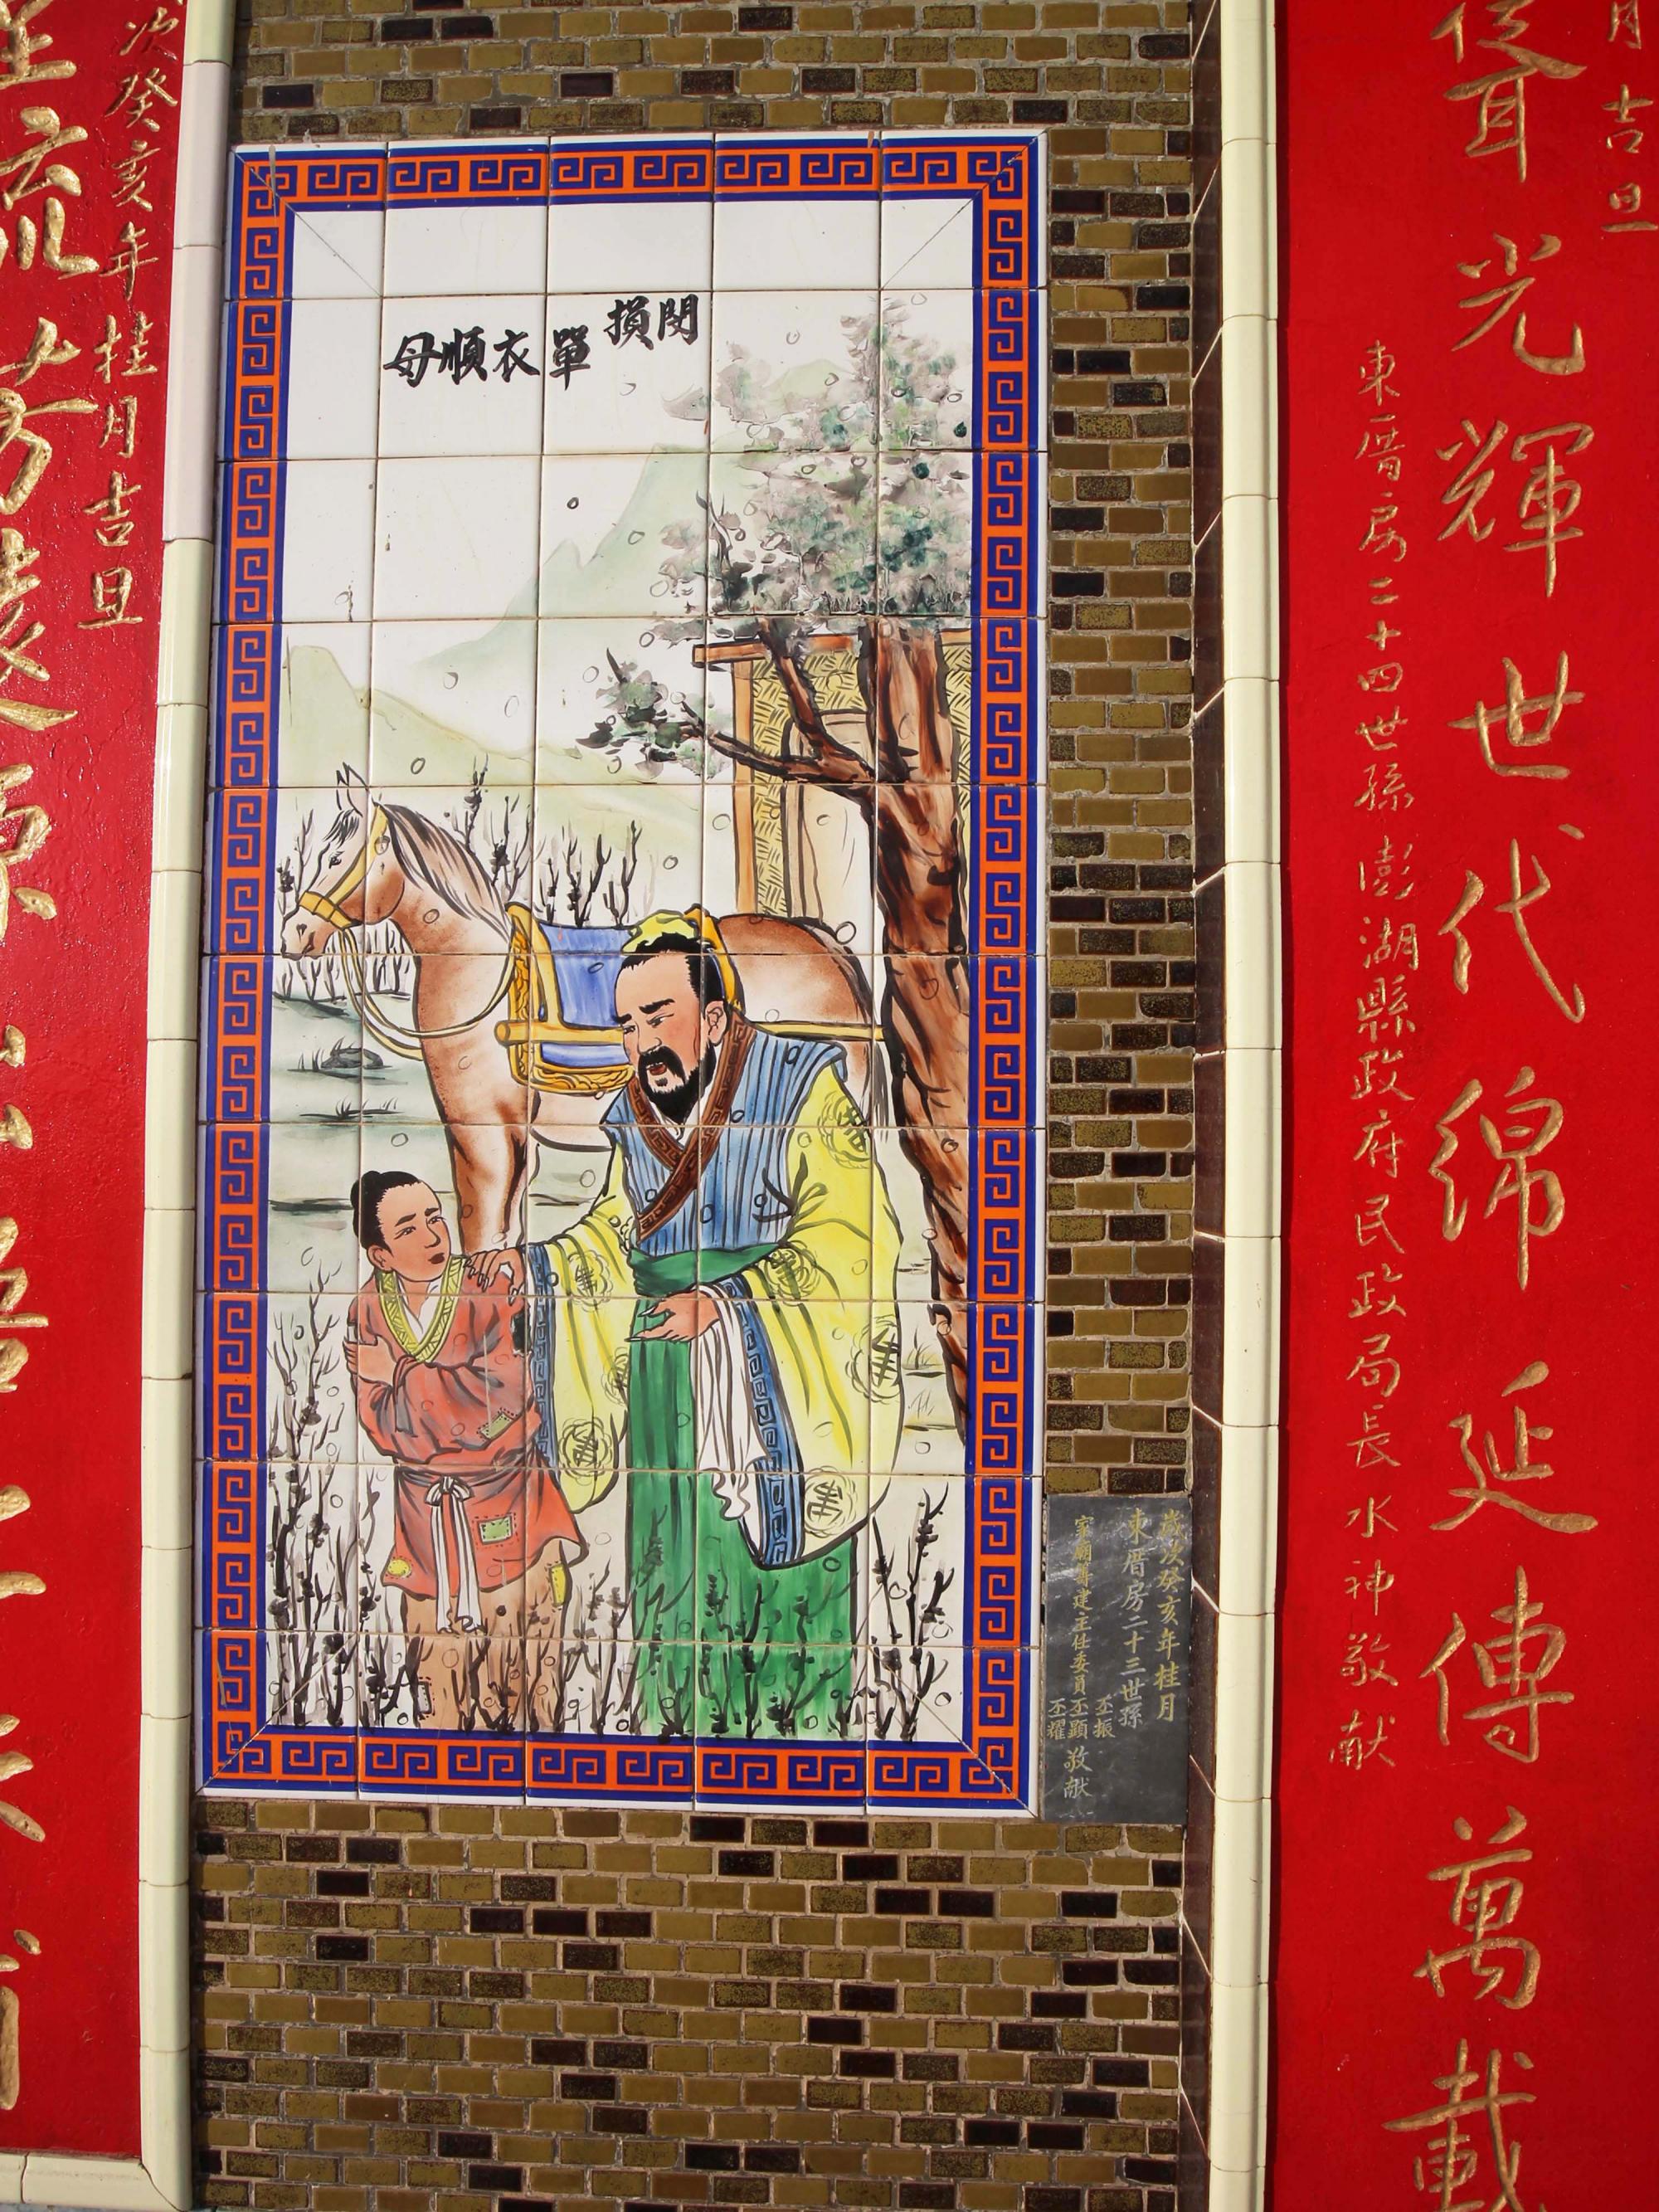 月吉旦
聳光輝世代綿延傳萬載
東厝房二十四世孫澎湖縣政府民政局長水神敬献
閔損
單衣順母
歲次癸亥年桂月
東厝房二十三世孫
丕振
家廟籌建主任委員丕顯敬献
丕耀
次癸亥年桂月吉旦